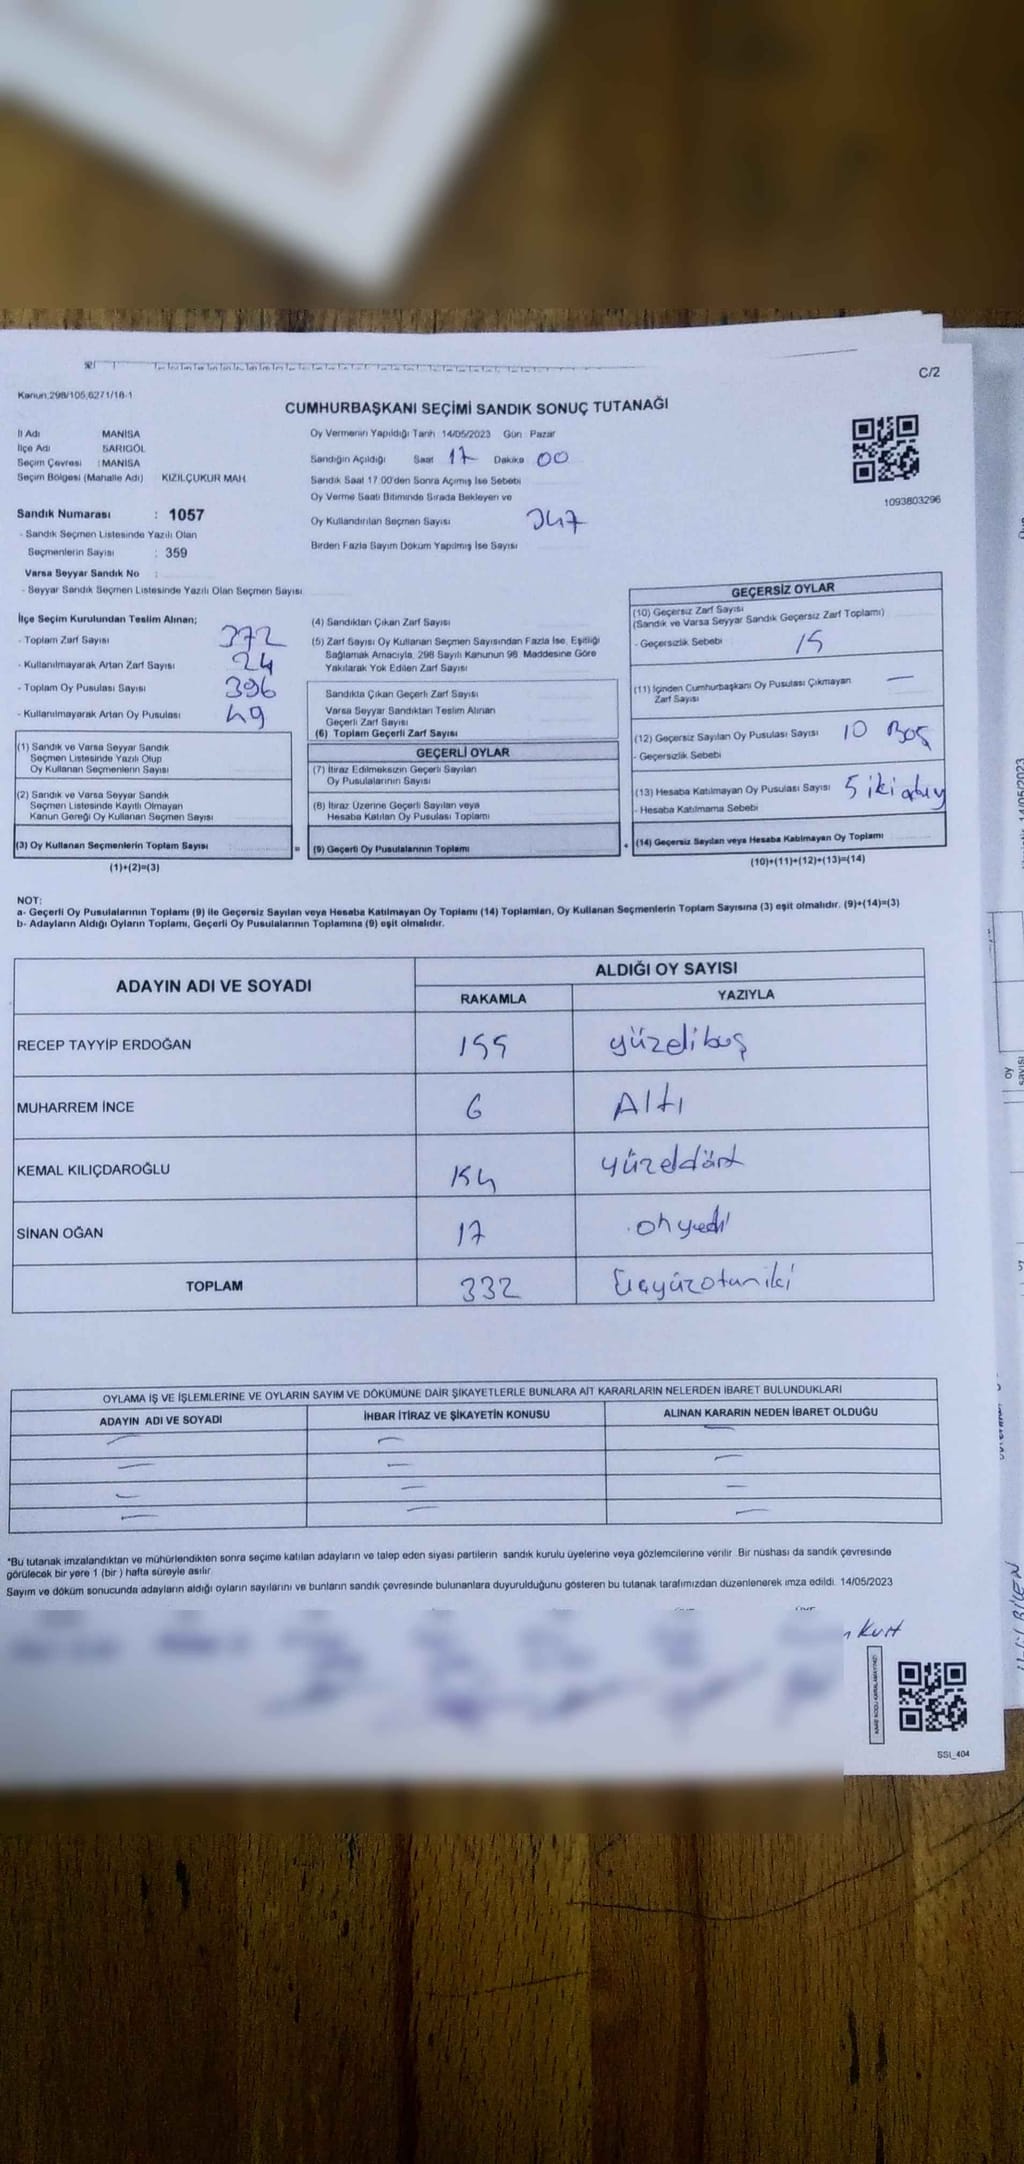 C/2
Kanun:298/105,6271/18-1
CUMHURBAŞKANI SEÇİMİ SANDIK SONUÇ TUTANAĞI
İl Adı MANİSA
İlçe Adı SARIGÖL
Seçim Çevresi : MANİSA
Seçim Bölgesi (Mahalle Adı) KIZILÇUKUR MAH.
Sandık Numarası : 1057
- Sandık Seçmen Listesinde Yazılı Olan
Seçmenlerin Sayısı : 359
Varsa Seyyar Sandık No :
- Seyyar Sandık Seçmen Listesinde Yazılı Olan Seçmen Sayısı
Oy Vermenin Yapıldığı Tarih 14/05/2023 Gün Pazar
Sandığın Açıldığı Saat 17 Dakika 00
Sandık Saat 17.00'den Sonra Açımış İse Sebebi
Oy Verme Saati Bitiminde Sırada Bekleyen ve
Oy Kullandırılan Seçmen Sayısı 347
Birden Fazla Sayım Döküm Yapılmış İse Sayısı
1093803296
İlçe Seçim Kurulundan Teslim Alınan;
- Toplam Zarf Sayısı 372
- Kullanılmayarak Artan Zarf Sayısı 24
- Toplam Oy Pusulası Sayısı 396
- Kullanılmayarak Artan Oy Pusulası 49
(1) Sandık ve Varsa Seyyar Sandık
Seçmen Listesinde Yazılı Olup
Oy Kullanan Seçmenlerin Sayısı
(2) Sandık ve Varsa Seyyar Sandık
Seçmen Listesinde Kayıtlı Olmayan
Kanun Gereği Oy Kullanan Seçmen Sayısı
(3) Oy Kullanan Seçmenlerin Toplam Sayısı
(1)+(2)=(3)
(4) Sandıktan Çıkan Zarf Sayısı
(5) Zarf Sayısı Oy Kullanan Seçmen Sayısından Fazla İse, Eşitliği
Sağlamak Amacıyla, 298 Sayılı Kanunun 98. Maddesine Göre
Yakılarak Yok Edilen Zarf Sayısı
Sandıkta Çıkan Geçerli Zarf Sayısı
Varsa Seyyar Sandıktan Teslim Alınan
Geçerli Zarf Sayısı
(6) Toplam Geçerli Zarf Sayısı
GEÇERLİ OYLAR
(7) İtiraz Edilmeksizin Geçerli Sayılan
Oy Pusulalarının Sayısı
(8) İtiraz Üzerine Geçerli Sayılan veya
Hesaba Katılan Oy Pusulası Toplamı
= (9) Geçerli Oy Pusulalarının Toplamı
GEÇERSİZ OYLAR
(10) Geçersiz Zarf Sayısı
(Sandık ve Varsa Seyyar Sandık Geçersiz Zarf Toplamı)
- Geçersizlik Sebebi 15
(11) İçinden Cumhurbaşkanı Oy Pusulası Çıkmayan —
Zarf Sayısı
(12) Geçersiz Sayılan Oy Pusulası Sayısı 10 Boş
- Geçersizlik Sebebi
(13) Hesaba Katılmayan Oy Pusulası Sayısı 5 iki
- Hesaba Katılmama Sebebi
+ (14) Geçersiz Sayılan veya Hesaba Katılmayan Oy Toplamı
(10)+(11)+(12)+(13)=(14)
NOT:
a- Geçerli Oy Pusulalarının Toplamı (9) ile Geçersiz Sayılan veya Hesaba Katılmayan Oy Toplamı (14) Toplamları, Oy Kullanan Seçmenlerin Toplam Sayısına (3) eşit olmalıdır. (9)+(14)=(3)
b- Adayların Aldığı Oyların Toplamı, Geçerli Oy Pusulalarının Toplamına (9) eşit olmalıdır.
ADAYIN ADI VE SOYADI ALDIĞI OY SAYISI
RAKAMLA YAZIYLA
RECEP TAYYİP ERDOĞAN 155 yüzelibeş
MUHARREM İNCE 6 Altı
KEMAL KILIÇDAROĞLU 154 yüzeldört
SİNAN OĞAN 17 onyedi
TOPLAM 332 Üçyüzotuniki
OYLAMA İŞ VE İŞLEMLERİNE VE OYLARIN SAYIM VE DÖKÜMÜNE DAİR ŞİKAYETLERLE BUNLARA AİT KARARLARIN NELERDEN İBARET BULUNDUKLARI
ADAYIN ADI VE SOYADI İHBAR İTİRAZ VE ŞİKAYETİN KONUSU ALINAN KARARIN NEDEN İBARET OLDUĞU
*Bu tutanak imzalandıktan ve mühürlendikten sonra seçime katılan adayların ve talep eden siyasi partilerin sandık kurulu üyelerine veya gözlemcilerine verilir. Bir nüshası da sandık çevresinde
görülecek bir yere 1 (bir ) hafta süreyle asılır.
Sayım ve döküm sonucunda adayların aldığı oyların sayılarını ve bunların sandık çevresinde bulunanlara duyurulduğunu gösteren bu tutanak tarafımızdan düzenlenerek imza edildi. 14/05/2023
Kurt
SSI_404
14/05/2023
oy
sayısı